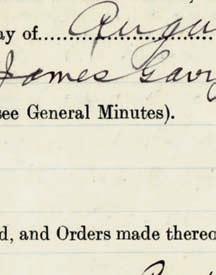 ay of Augu
James Gavi
see General Minutes).
d, and Orders made thereo